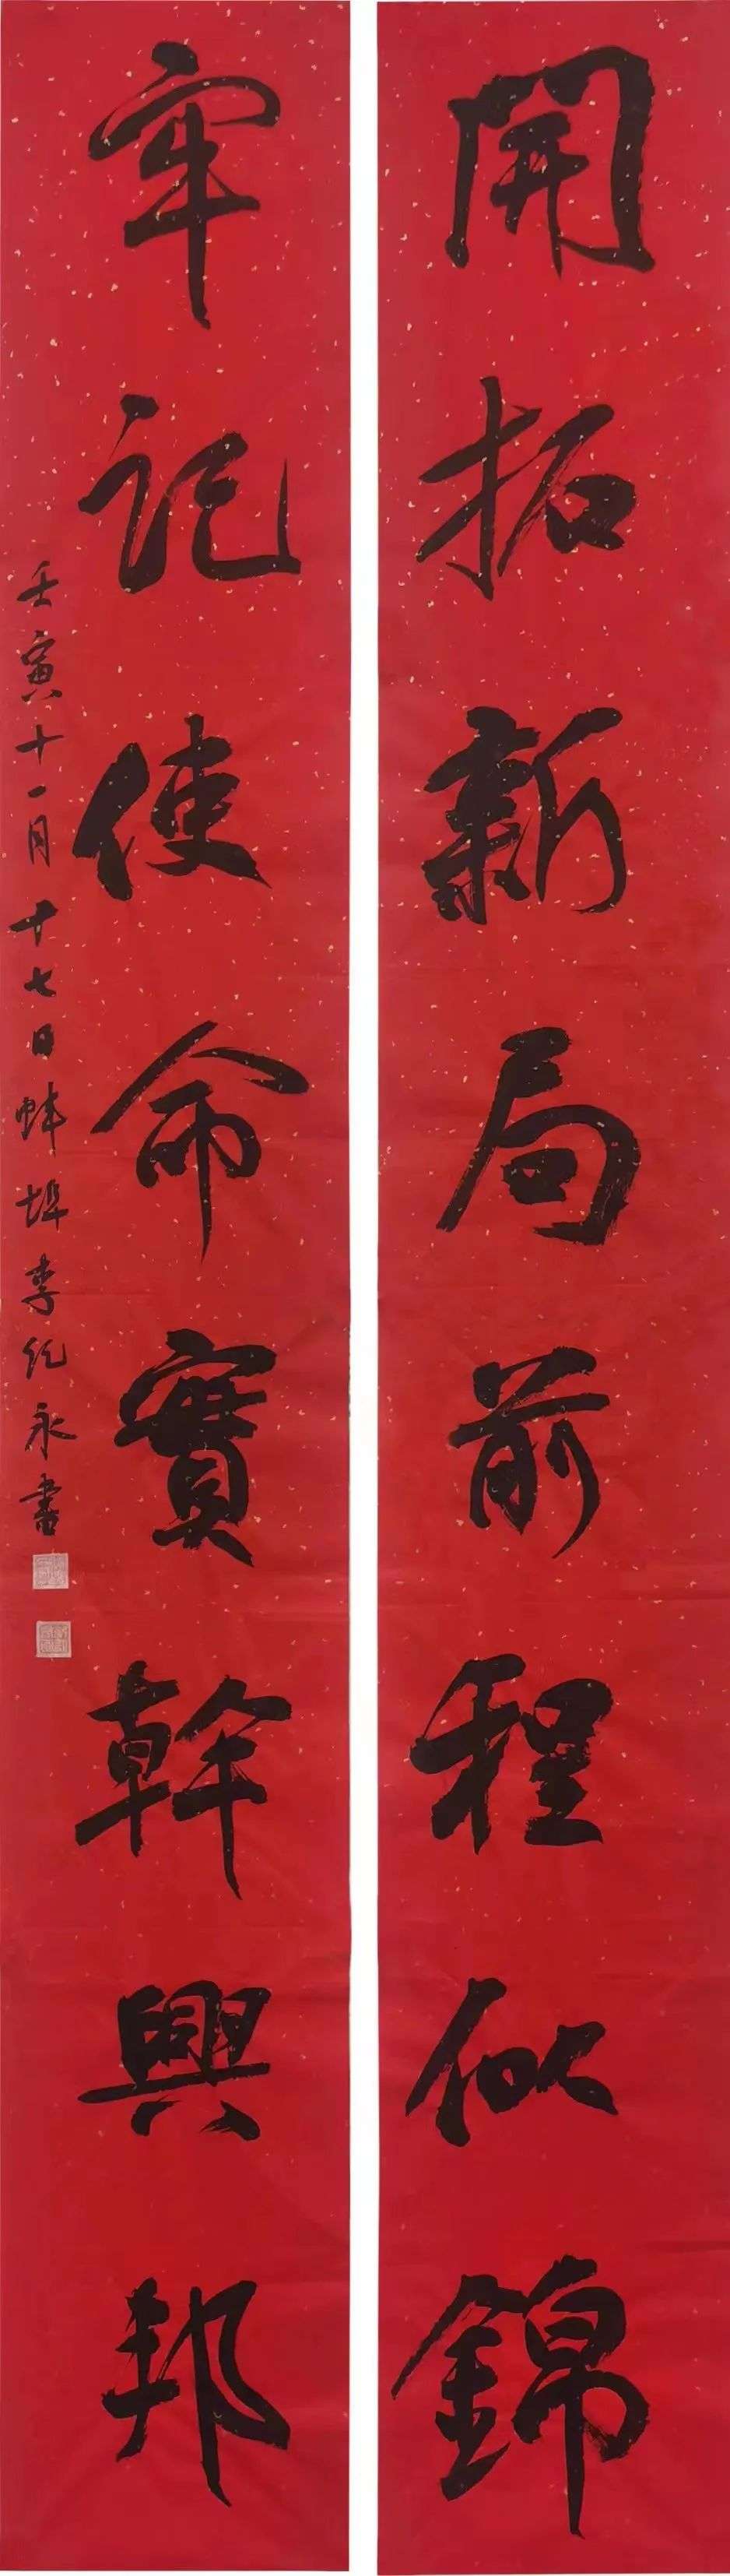 開拓新局前程似錦
牢記使命實幹興邦
壬寅十一月十七日蚌埠李紀永書